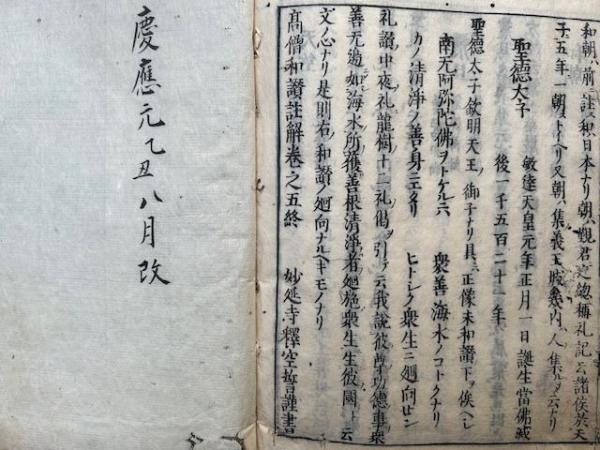 和朝ハ前ニ註ス和ハ日本ナリ朝ハ觀君之總稱礼記云諸侯於天
子五年一朝ストイヘリ又朝ハ集義王城畿内ノ人集ルヲ云ナリ
聖德太子 敏達天皇元年正月一日誕生當佛滅
後一千五百二十一年
聖德太子欽明天王ノ御子ナリ具ニハ正像末和讃ノ下ヲ俟ヘシ
南无阿弥陀佛ヲトケル云 衆善海水ノコトクナリ
カノ清淨ノ善身ニエタリ ヒトシク衆生ニ廻向セン
礼讃中夜礼龍樹十二礼偈ヲ引テ云我說彼尊功德事衆
善无邊如海水所獲善根清淨者廻施衆生生彼國ト云
文ノ心ナリ是則右ノ和讃ノ廻向ナルヘキモノナリ
高僧和讃註解卷之五終 妙延寺釋空誓謹書
慶應元乙丑八月改